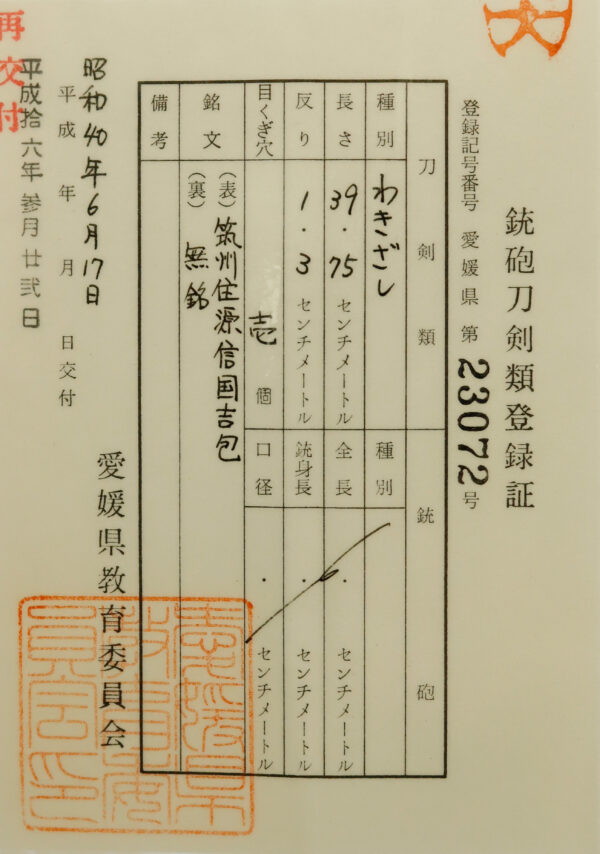 銃砲刀剣類登録証
登録記号番号 愛媛県 第 23072 号
刀剣類 銃砲
種別 わきざし 種別
長さ 39.75 センチメートル 全長 . センチメートル
反り 1.3 センチメートル 銃身長 . センチメートル
目くぎ穴 壱 個 口径 . センチメートル
銘文 (表) 筑州住源信国吉包
(裏) 無銘
備考
昭和40年6月17日
平成 年 月 日交付
再交付
平成拾六年参月廿弐日
愛媛県教育委員会
愛媛県
教育委
員会印